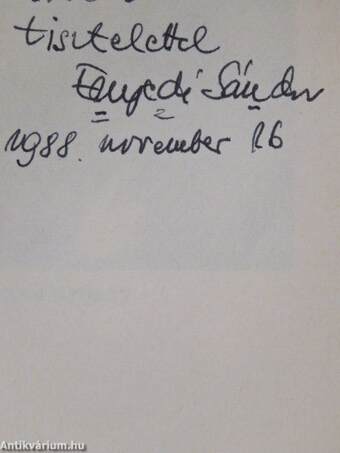 tisztelettel
Enyedi Sándor
1988. november 16
Antikvárium.hu